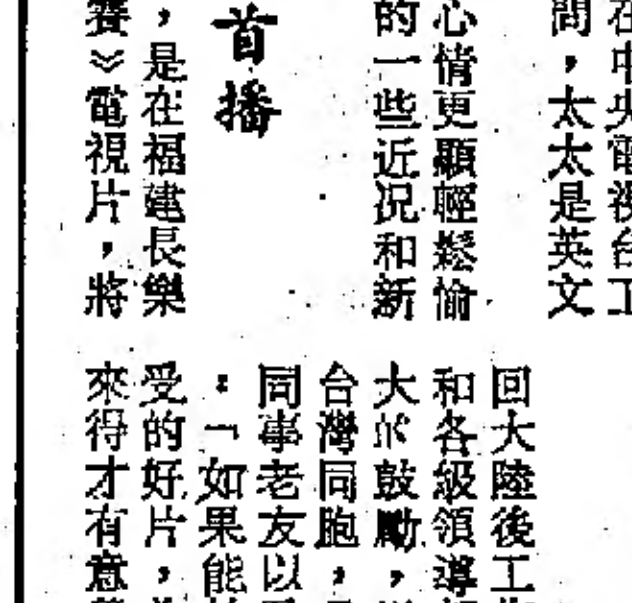 在中央電視台工
問，太太是英文
心情更顯輕鬆愉
的一些近況和新
首播
，是在福建長樂
賽》電視片，將
回大陸後工
和各級領導
大的鼓勵，
台灣同胞，
同事老友以
：「如果能
受的好片，
來得才有意